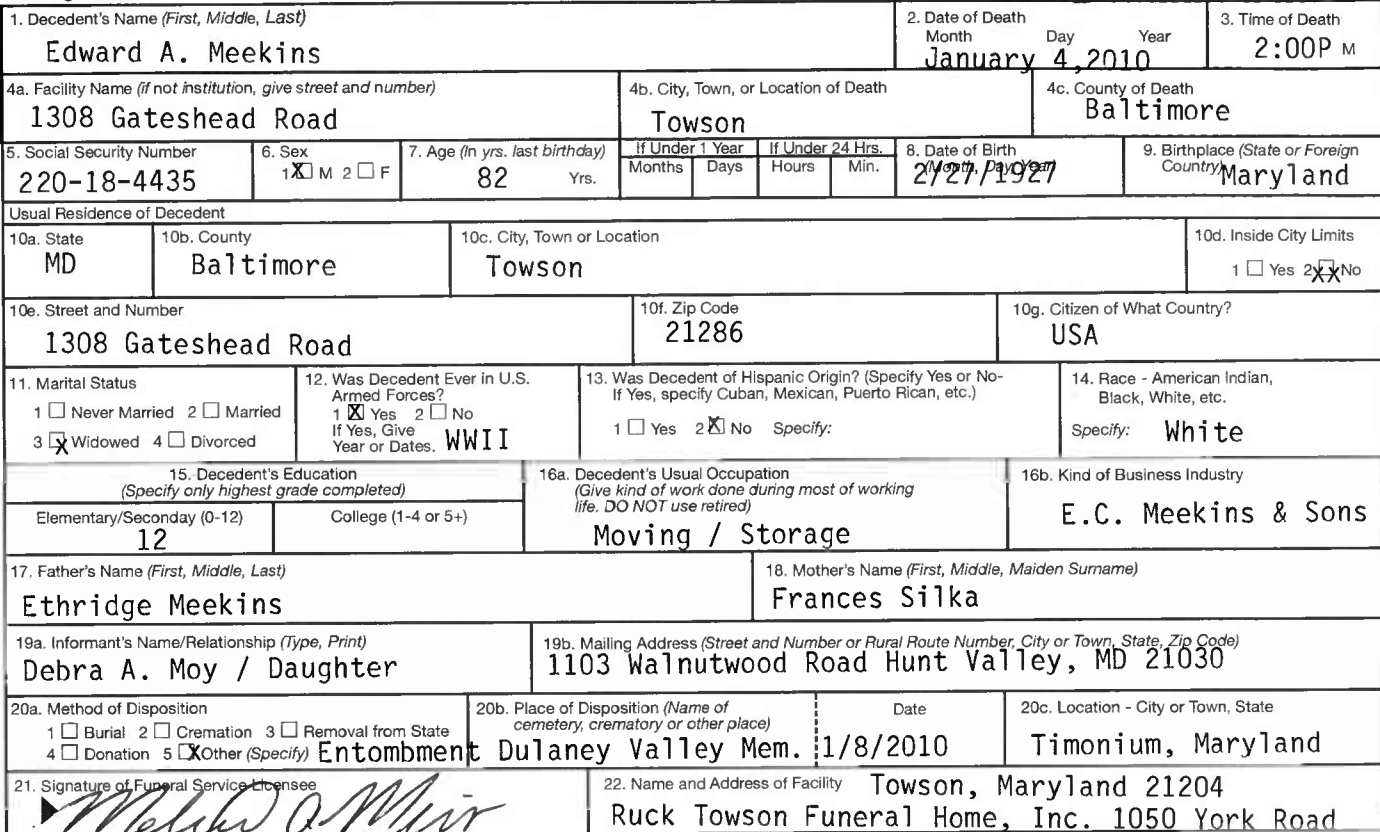 1. Decedent's Name (First, Middle, Last)
Edward A. Meekins
2. Date of Death
Month Day Year
January 4,2010
3. Time of Death
2:00P M
4a. Facility Name (if not institution, give street and number)
1308 Gateshead Road
4b. City, Town, or Location of Death
Towson
4c. County of Death
Baltimore
5. Social Security Number
220-18-4435
6. Sex
1 X M 2 ☐ F
7. Age (In yrs. last birthday)
82 Yrs.
If Under 1 Year
Months Days
If Under 24 Hrs.
Hours Min.
8. Date of Birth
(Month, Day, Year)
2/27/1927
9. Birthplace (State or Foreign
Country) Maryland
Usual Residence of Decedent
10a. State
MD
10b. County
Baltimore
10c. City, Town or Location
Towson
10d. Inside City Limits
1 ☐ Yes 2 XX No
10e. Street and Number
1308 Gateshead Road
10f. Zip Code
21286
10g. Citizen of What Country?
USA
11. Marital Status
1 ☐ Never Married 2 ☐ Married
3 X Widowed 4 ☐ Divorced
12. Was Decedent Ever in U.S.
Armed Forces?
1 X Yes 2 ☐ No
If Yes, Give
Year or Dates. WWII
13. Was Decedent of Hispanic Origin? (Specify Yes or No-
If Yes, specify Cuban, Mexican, Puerto Rican, etc.)
1 ☐ Yes 2 X No Specify:
14. Race - American Indian,
Black, White, etc.
Specify: White
15. Decedent's Education
(Specify only highest grade completed)
Elementary/Seconday (0-12)
12
College (1-4 or 5+)
16a. Decedent's Usual Occupation
(Give kind of work done during most of working
life. DO NOT use retired)
Moving / Storage
16b. Kind of Business Industry
E.C. Meekins & Sons
17. Father's Name (First, Middle, Last)
Ethridge Meekins
18. Mother's Name (First, Middle, Maiden Surname)
Frances Silka
19a. Informant's Name/Relationship (Type, Print)
Debra A. Moy / Daughter
19b. Mailing Address (Street and Number or Rural Route Number, City or Town, State, Zip Code)
1103 Walnutwood Road Hunt Valley, MD 21030
20a. Method of Disposition
1 ☐ Burial 2 ☐ Cremation 3 ☐ Removal from State
4 ☐ Donation 5 X Other (Specify) Entombment
20b. Place of Disposition (Name of
cemetery, crematory or other place)
Dulaney Valley Mem.
Date
1/8/2010
20c. Location - City or Town, State
Timonium, Maryland
21. Signature of Funeral Service Licensee
22. Name and Address of Facility Towson, Maryland 21204
Ruck Towson Funeral Home, Inc. 1050 York Road